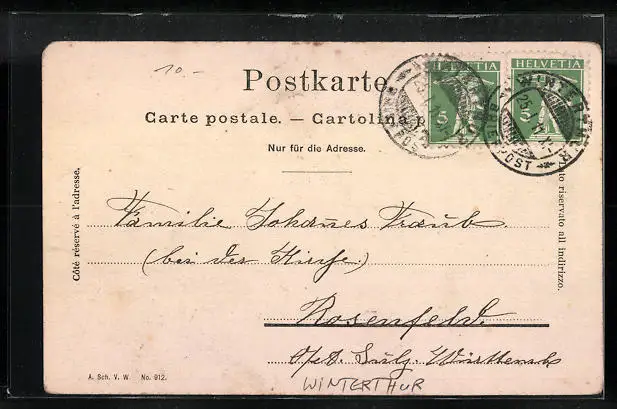 10.-
Postkarte
Carte postale. — Cartolina p
Nur für die Adresse.
HELVETIA
5
HELVETIA
5
WINTERTHUR
BRIEFPOST
Côté réservé à l'adresse.
to riservato all indirizzo.
Familie Johannes Traub.
(bei der Kirche.)
Rosenfeld.
O/A. Sulz, Württemb.
A. Sch. V. W. No. 912.
WINTERTHUR